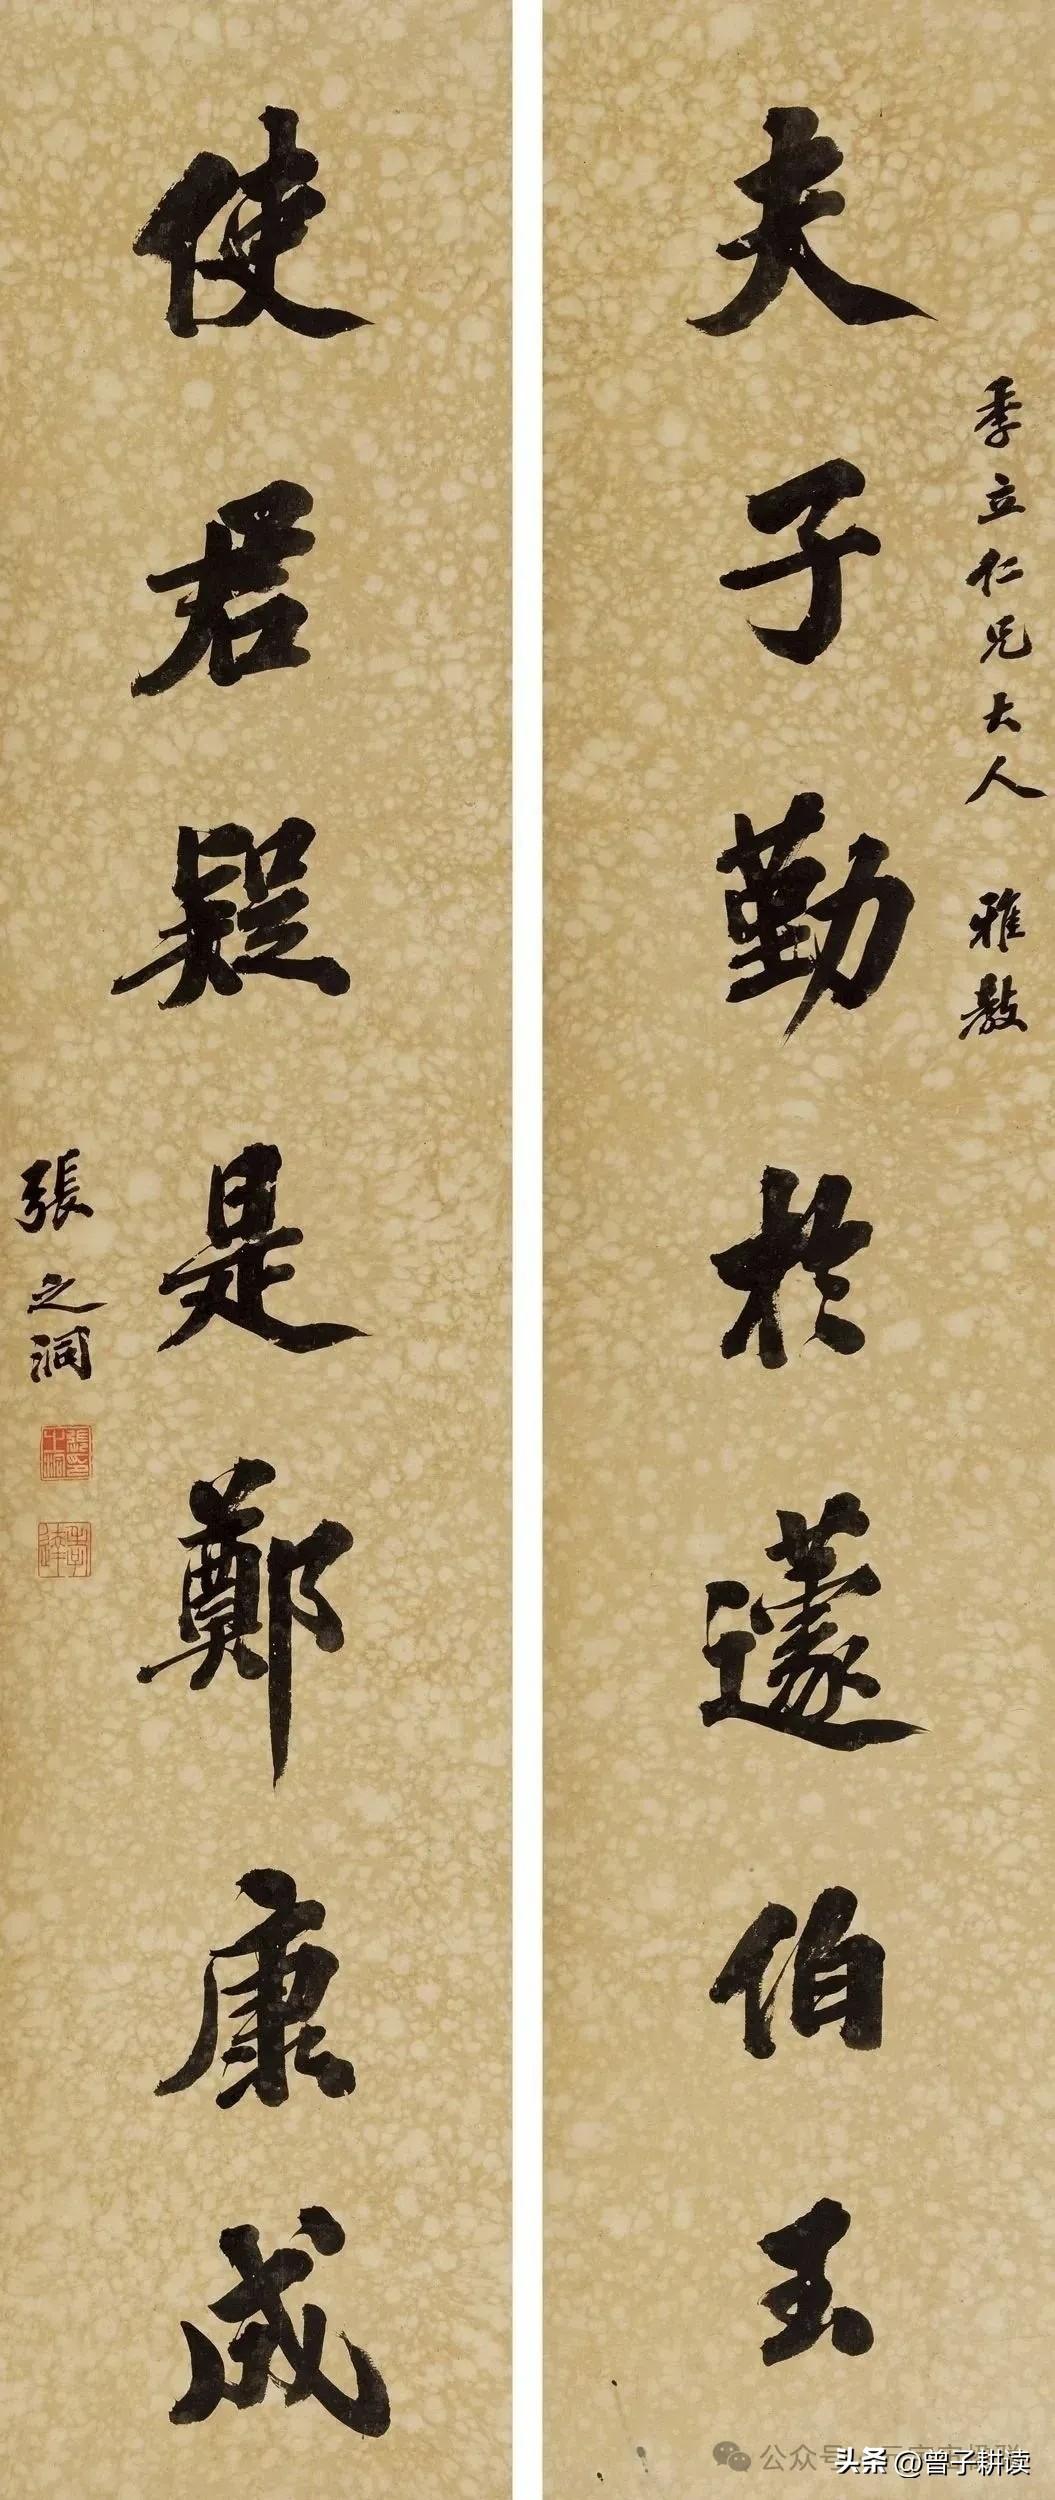 夫子勤於蘧伯玉
季立仁兄大人 雅教
使君疑是鄭康成
張之洞
公众号
头条 @曾子耕读